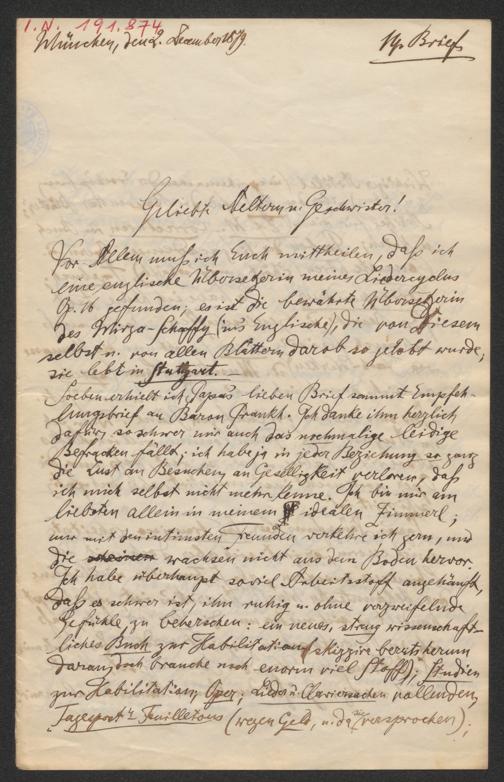 I.N. 191.874
München, den 2. Dezember 1879.
Brief
Geliebte Aeltern u. Geschwister!
Vor Allem muß ich Euch mittheilen, daß ich
eine englische Übersetzerin meines Liedercyclus
Op. 16 gefunden; es ist die bewährte Übersetzerin
des Mirza-Schaffy (ins Englische), die von Diesem
selbst u. von allen Blättern darob so gelobt wurde,
sie lebt in Stuttgart. –
Soeben erhielt ich Papa's lieben Brief sammt Empfeh-
lungsbrief an Baron Frankh. Ich danke ihm herzlich
dafür, so schwer mir auch das nochmalige leidige
Befracken fällt; ich habe ja in jeder Beziehung so ganz
die Lust an Besuchen, an Geselligkeit verloren, daß
ich mich selbst nicht mehr kenne. Ich bin nur am
liebsten allein in meinem idealen Zimmerl;
nur mit den intimsten Freunden verkehre ich gern, und
die wachsen nicht aus dem Boden hervor.
Ich habe überhaupt soviel Arbeitsstoff angehäuft,
daß es schwer ist, ihn ruhig u. ohne verzweifelnde
Gefühle zu beherschen: ein neues, streng wissenschaft-
liches Buch zur Habilitation (skizzire bereits herum
daran, doch brauche noch enorm viel Stoff); Studien
zur Habilitation; Oper; Lieder u. Claviersachen vollenden;
Tagespost-Feuilletons (wegen Geld, u. da versprochen);